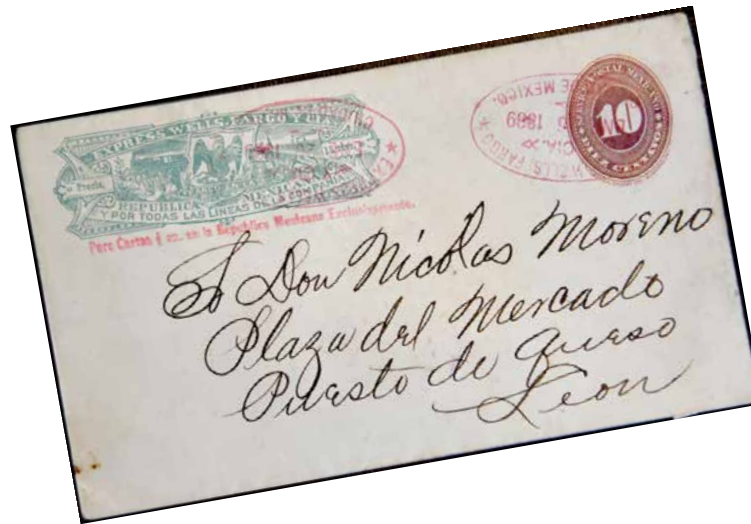 EXPRESS WELLS-FARGO Y CIA
REPUBLICA MEXICANA
Y POR TODAS LAS LINEAS DE LA COMPAÑIA
Para Cartas en la República Mexicana Exclusivamente.
WELLS, FARGO
DE MEXICO.
1889
SERVICIO POSTAL MEXICANO
10
DIEZ CENTAVOS
Sr Don Nicolas Moreno
Plaza del Mercado
Puesto de queso
Leon